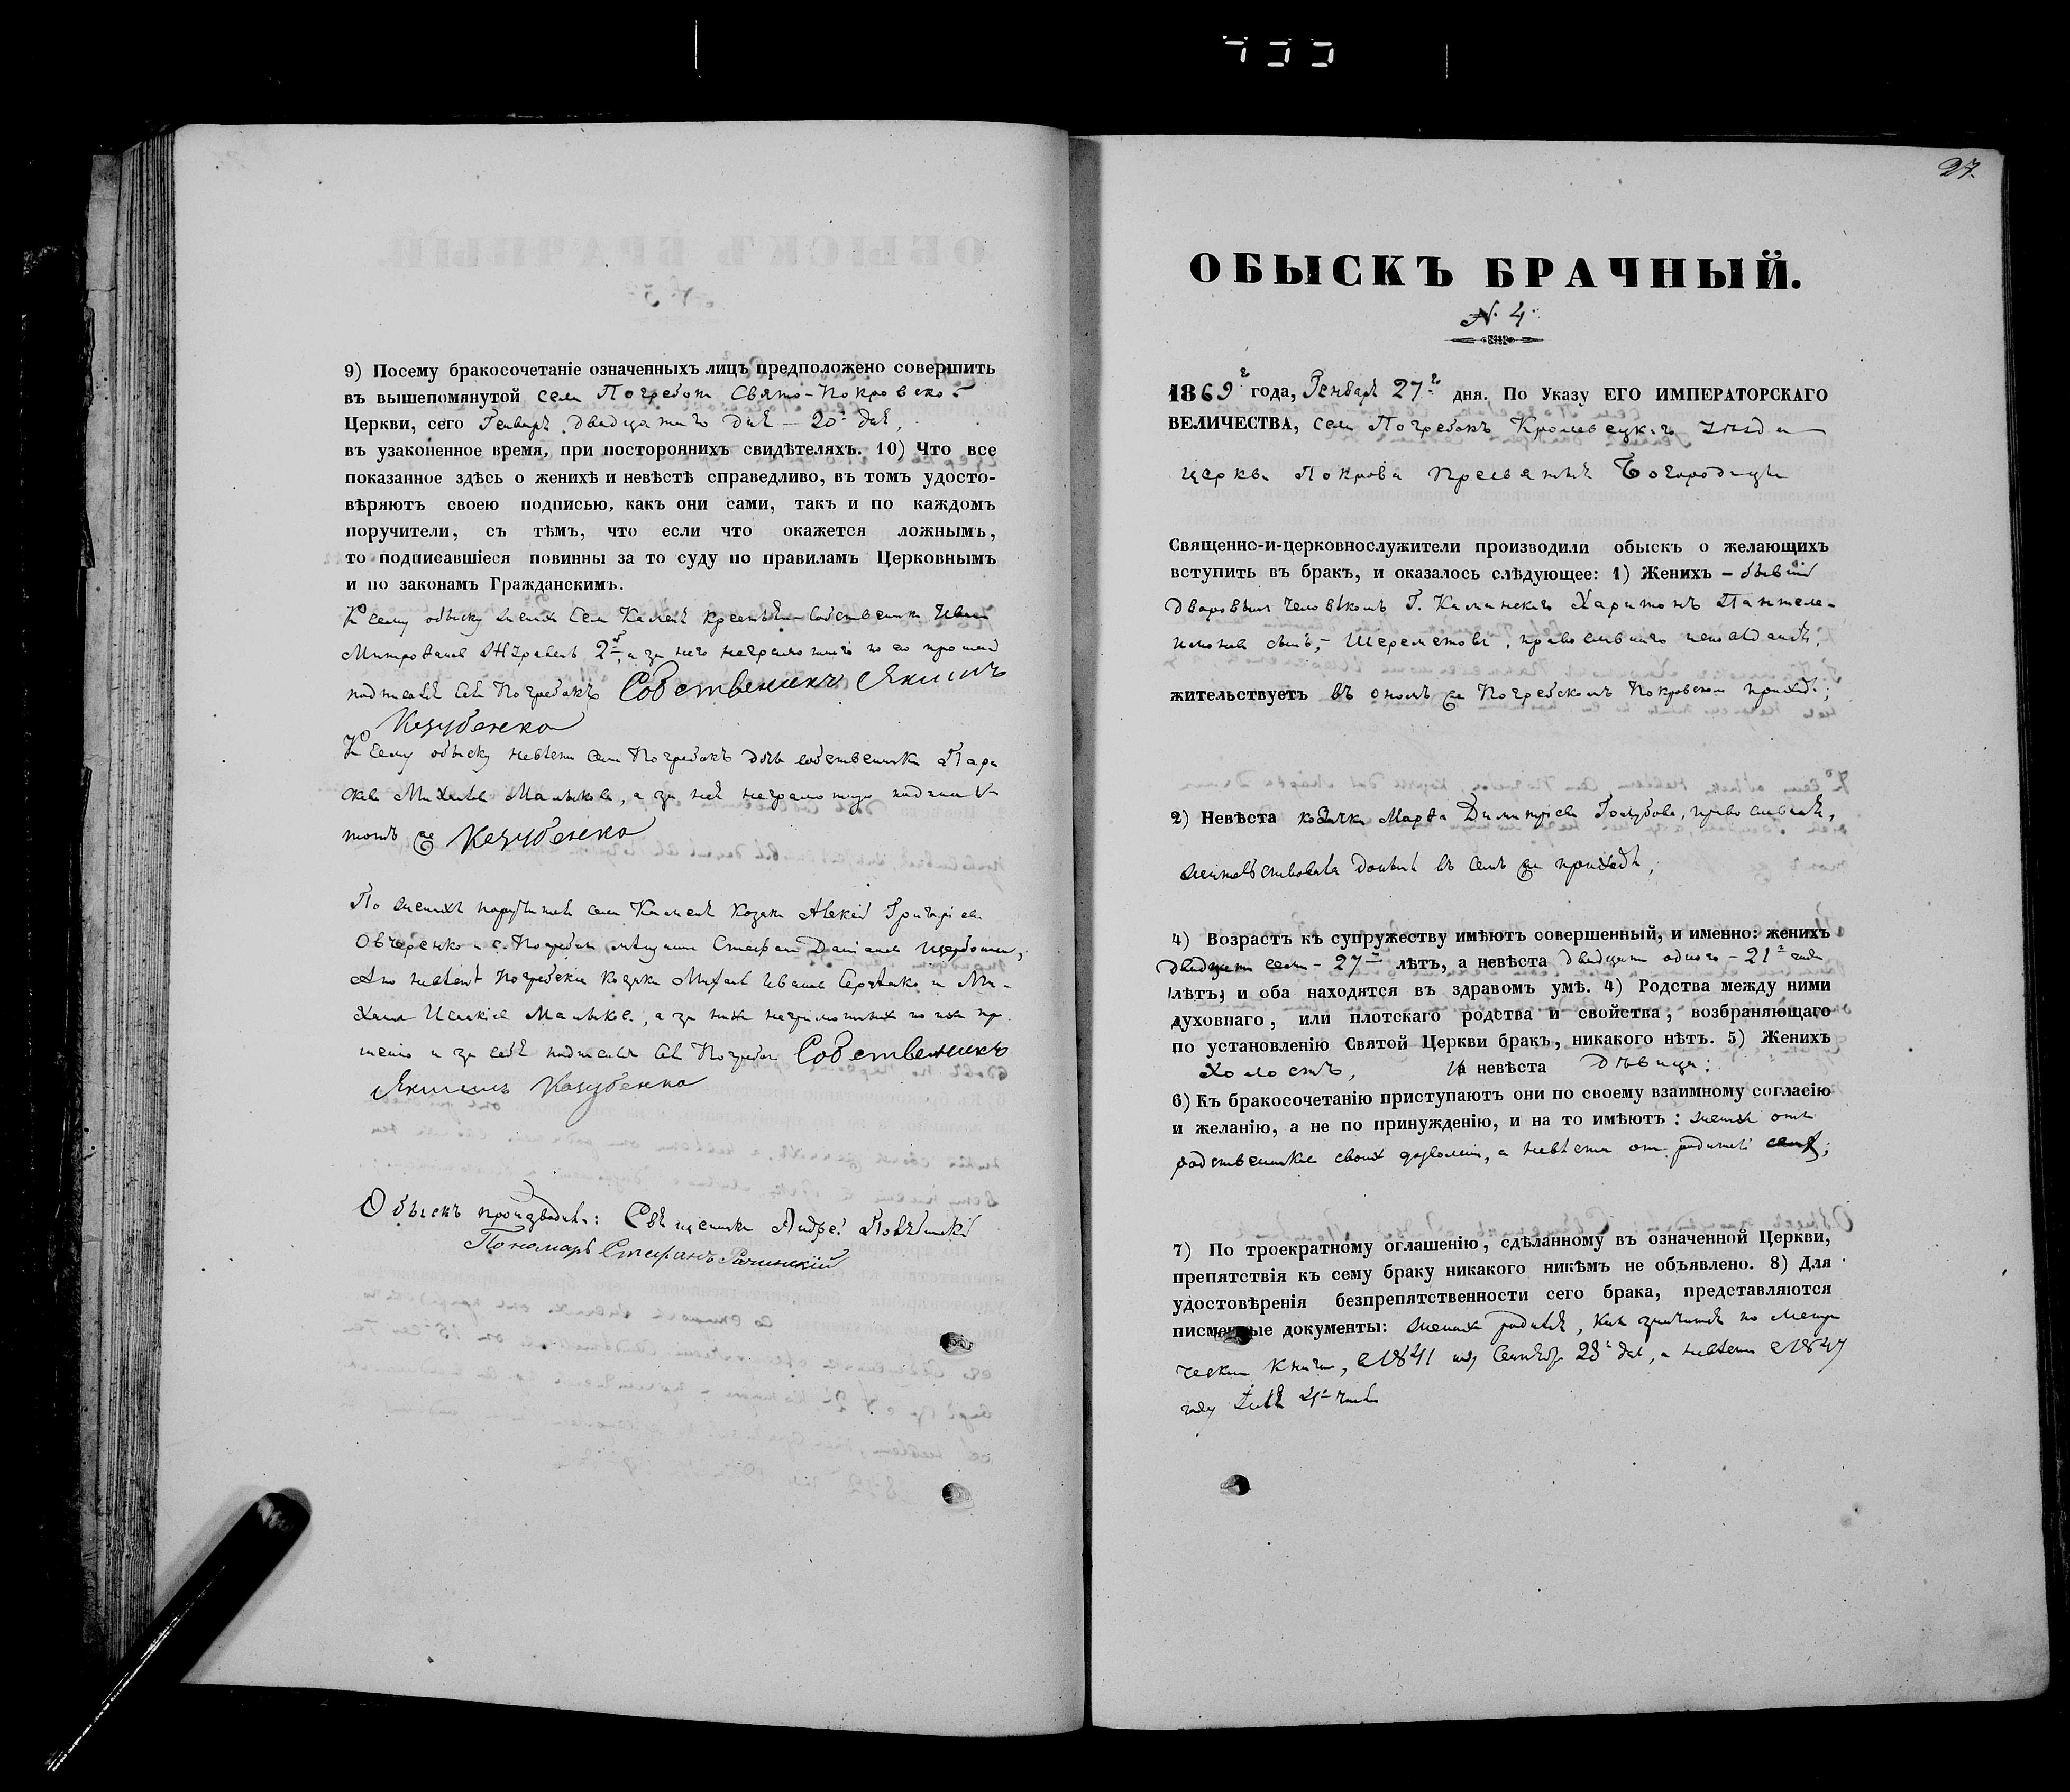 9) Посему бракосочетаніе означенныхъ лицъ предположено совершить
въ вышепомянутой села Погребокъ Свято-Покровской
Церкви, сего Генваря двадцатаго дня — 20 дня,
въ узаконенное время, при постороннихъ свидѣтеляхъ. 10) Что все
показанное здѣсь о женихѣ и невѣстѣ справедливо, въ томъ удосто-
вѣряютъ своею подписью, какъ они сами, такъ и по каждомъ
поручители, съ тѣмъ, что если что окажется ложнымъ,
то подписавшіеся повинны за то суду по правиламъ Церковнымъ
и по законамъ Гражданскимъ.
К сему обыску женихъ села Камень собственникъ Иванъ
2й, а за него неграмотнаго по его прошенію
подписался села Погребокъ Собственикъ Якимъ
Козубенко
К сему обыску невѣста села Погребокъ дочь собственника Пара
Малыкова, а за неё неграмотную подписался
тотъ же Козубенко
По женихѣ поручители села Каменя Козаки Алексѣй Григоріевъ
Овчаренко и с. Погребокъ Стефанъ
Погребскіе Козаки Ивановъ и Ми-
Малыковъ, а за нихъ неграмотныхъ по ихъ про
шенію и за себя подписался села Погребокъ Собственикъ
Якимъ Козубенко
Обыскъ производили: Священникъ Андрей
Пономарь Стефанъ Рачинскій
27.
ОБЫСКЪ БРАЧНЫЙ.
N. 4.
1869г года, Генваря 27го дня. По Указу ЕГО ИМПЕРАТОРСКАГО
ВЕЛИЧЕСТВА, села Погребокъ Кролевецкаго уѣзда
церкви Покрова Пресвятыя Богородицы
Священно-и-церковнослужители производили обыскъ о желающихъ
вступить въ бракъ, и оказалось слѣдующее: 1) Женихъ – бывшій
дворовымъ человѣкомъ Г. Каминскаго Харитонъ Пантеле-
имоновъ сынъ, Шереметовъ, православнаго исповѣданія,
жительствуетъ въ ономъ же Погребскомъ Покровскомъ приходѣ;
2) Невѣста козачка Марфа Димитріева Голубова, православная,
жительствовала донынѣ въ семъ же приходѣ;
4) Возрастъ къ супружеству имѣютъ совершенный, и именно: женихъ
двадцати семи - 27 лѣтъ, а невѣста двадцати одного - 21 года
лѣтъ, и оба находятся въ здравомъ умѣ. 4) Родства между ними
духовнаго, или плотскаго родства и свойства, возбраняющаго
по установленію Святой Церкви бракъ, никакого нѣтъ. 5) Женихъ
холостъ, А невѣста дѣвица;
6) Къ бракосочетанію приступаютъ они по своему взаимному согласію
и желанію, а не по принужденію, и на то имѣютъ: женихъ отъ
родственниковъ своихъ дозволеніе, а невѣста отъ родителей
7) По троекратному оглашенію, сдѣланному въ означенной Церкви,
препятствія къ сему браку никакого никѣмъ не объявлено. 8) Для
удостовѣренія безпрепятственности сего брака, представляются
писменные документы: женихъ родился, какъ значится по метри
ческимъ книгамъ, въ 1841 году Сентября 28 дня, а невѣста въ 1847
году